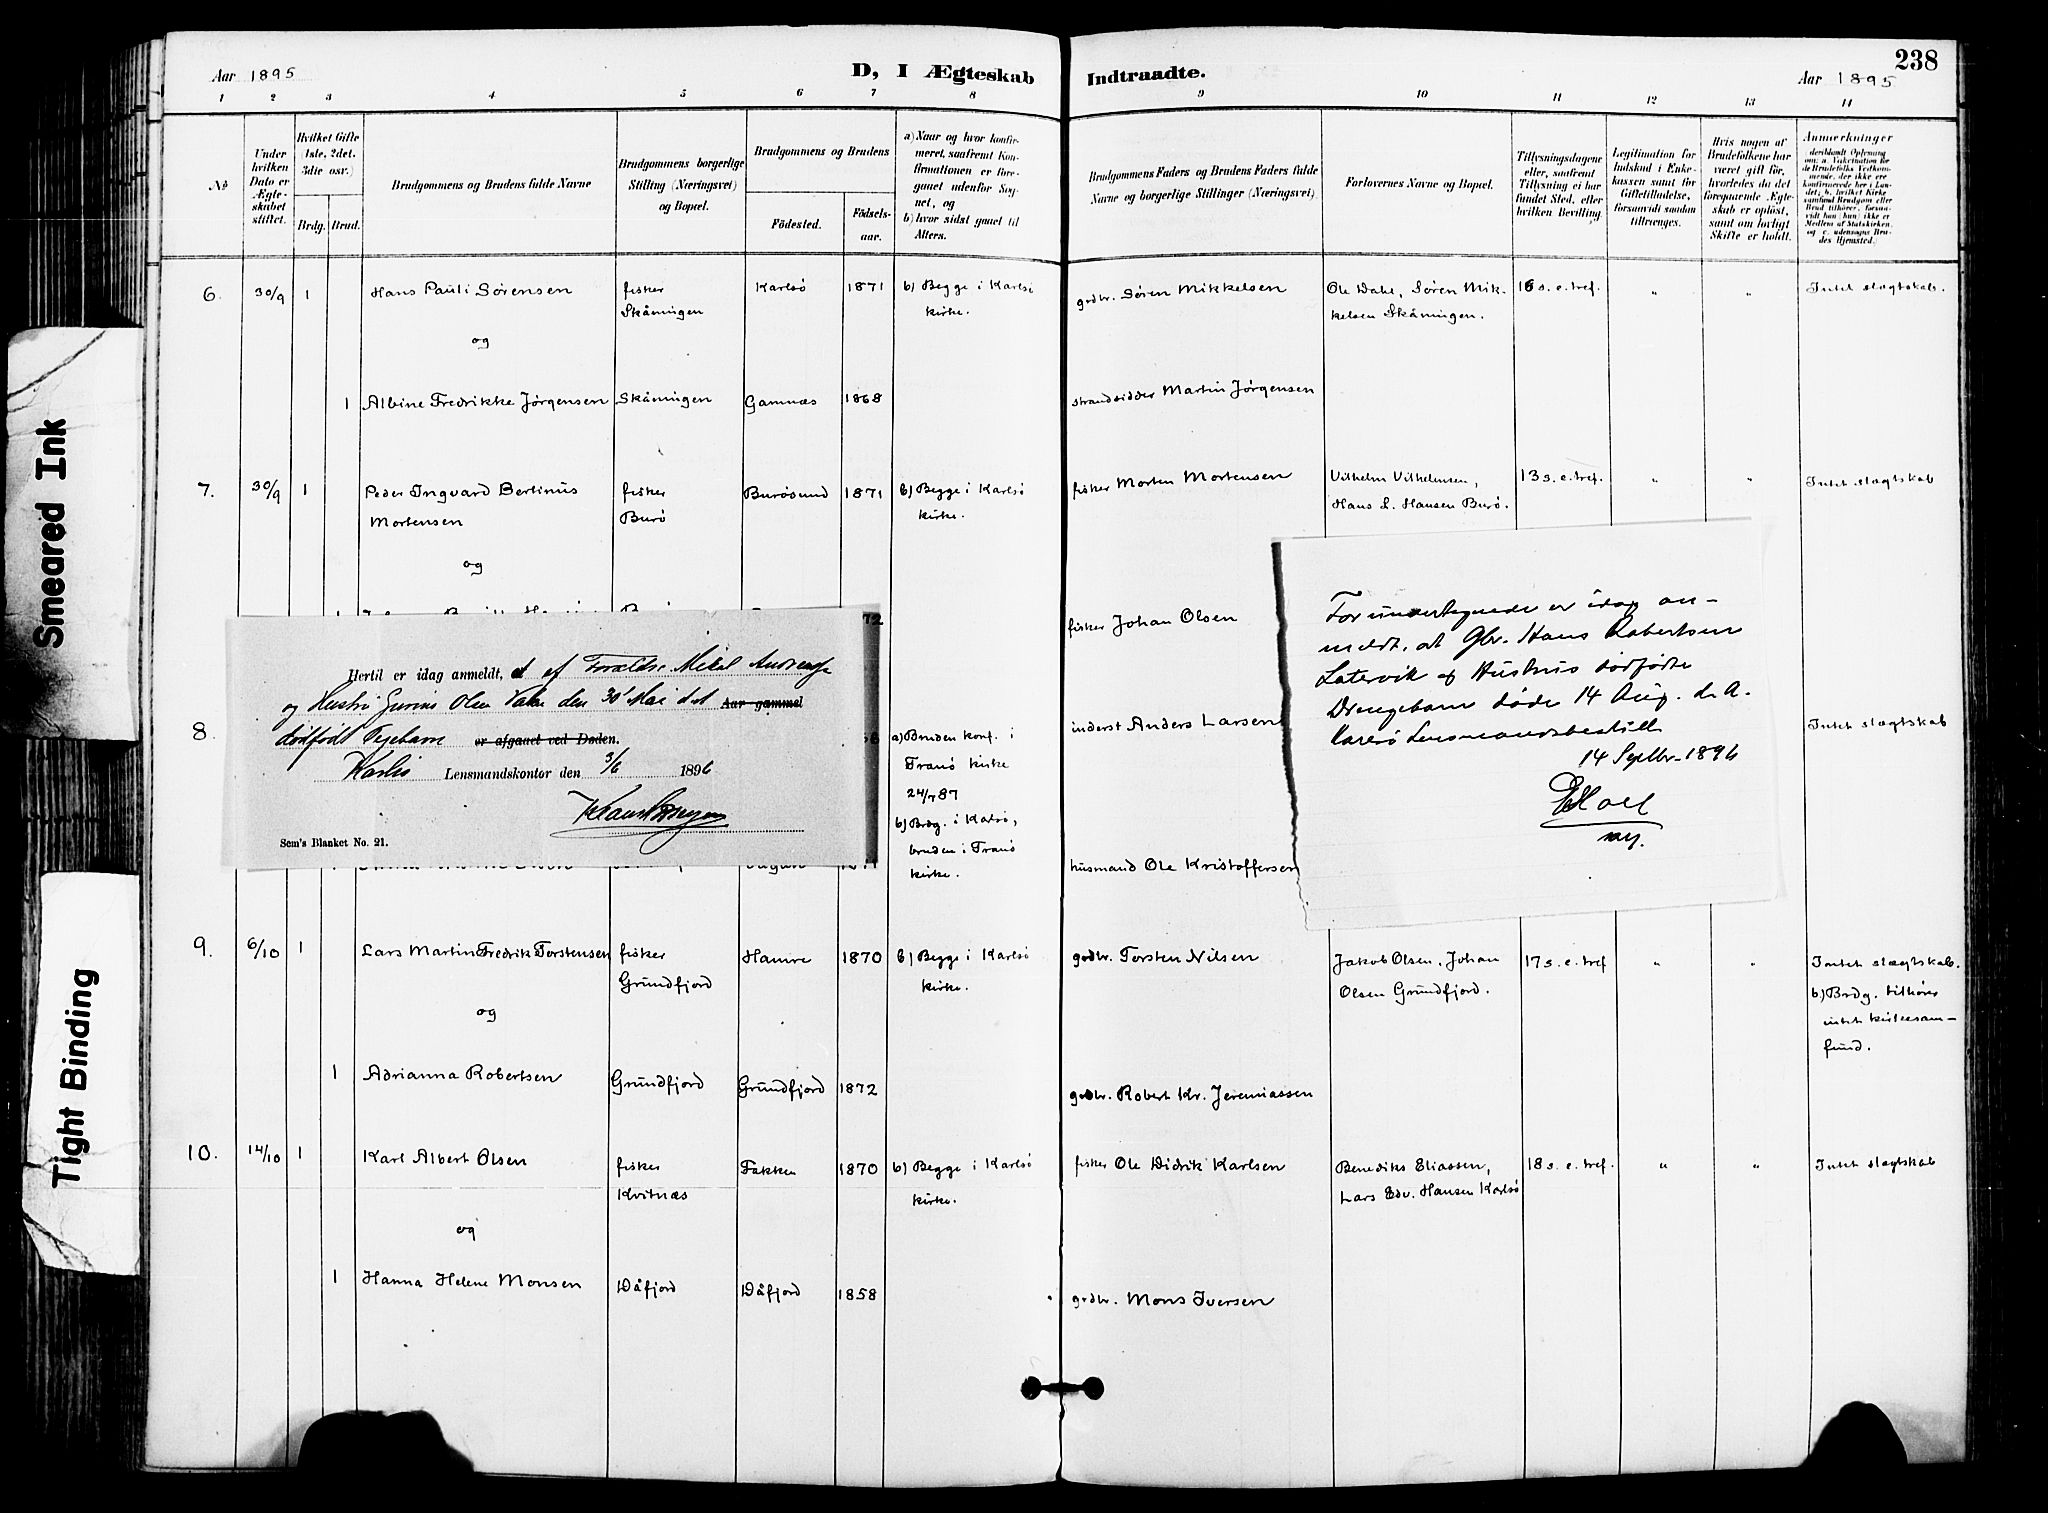 238
Aar 1895
D, I Ægteskab
Indtraadte.
Aar 1895
1 2 3 4 5 6 7 8 9 10 11 12 13 14
No
Under hvilken Dato er Ægte-skabet stiftet.
Hvilket Gifte (1ste, 2det, 3die osv.)
Brdg. Brud.
Brudgommens og Brudens fulde Navne
Brudgommens borgerlige Stilling (Næringsvei) og Bopæl.
Brudgommens og Brudens
Födested.
Födsels-aar.
a) Naar og hvor konfirmeret, saafremt Konfirmationen er foregaaet udenfor Sognet, og
b) hvor sidst gaaet til Alters.
Brudgommens Faders og Brudens Faders fulde Navne og borgerlige Stillinger (Næringsvei).
Forlovernes Navne og Bopæl.
Tillysningsdagene eller, saafremt Tillysning ei har fundet Sted, efter hvilken Bevilling.
Legitimation for Indskud i Enkekassen samt for Giftetilladelse, forsaavidt saadan tiltrænges.
Hvis nogen af Brudefolkene har været gift för, hvorledes da det foregaaende Ægteskab er oplöst, samt om lovligt Skifte er holdt.
Anmerkninger
6. 30/9 1 Hans Pauli Sörensen fisker Karlsö 1871 b) Begge i Karlsö grdbr. Sören Mikkelsen Ole Dahl, Sören Mik- 16 s. e. tref. " " Intet slægtskab.
Skåningen kirke. kelsen Skåningen.
og
1 Albine Fredrikke Jörgensen Skåningen Gamnæs 1868 strandsidder Martin Jörgensen
7. 30/9 1 Peder Ingvard Bertinus fisker Burösund 1871 b) Begge i Karlsö fisker Morten Mortensen Vilhelm Vilhelmsen, 13 s. e. tref. " " Intet slægtskab
Mortensen Burö kirke. Hans L. Hansen Burö.
og
72 fisker Johan Olsen
Hertil er idag anmeldt, at af Forældre Mikal
og Hustru Olsen den 30' Mai d.d. Aar gammel
dödfödt Pigebarn er afgaaet ved Døden.
Karlsö Lensmandskontor den 3/6 1896
Sem's Blanket No. 21.
For undertegnede er idag an-
meldt, at Gbr. Hans Robertsen
Latervik og Hustrus dødfødte
Drengebarn døde 14 Aug. d. A.
Karlsö Lensmandsbestill
14 Septbr. 1896
8. a) Bruden konf. i inderst Anders Larsen Intet slægtskab
Tranö kirke
24/7 87
b) Brdg. i Kalsö,
bruden i Tranö husmand Ole Kristoffersen
kirke.
9. 6/10 1 Lars Martin Fredrik Torstensen fisker Hamre 1870 b) Begge i Karlsö grdbr. Torsten Nilsen Jakob Olsen, Johan 17 s. e. tref " " Intet slægtskab.
Grundfjord kirke. Olsen Grundfjord. b) Brdg. tilhörer
og intet kirkesam-
fund.
1 Adrianna Robertsen Grundfjord Grundfjord 1872 grdbr. Robert Kr. Jeremiassen
10. 14/10 1 Karl Albert Olsen fisker Fakken 1870 b) Begge i Karlsö fisker Ole Didrik Karlsen Benediks Eliassen, 18 s. e. tref. " " Intet slægtskab
Kvitnæs kirke. Lars Edv. Hansen Karlsö
og
1 Hanna Helene Monsen Dåfjord Dåfjord 1858 grdbr. Mons Iversen
Smeared Ink
Tight Binding